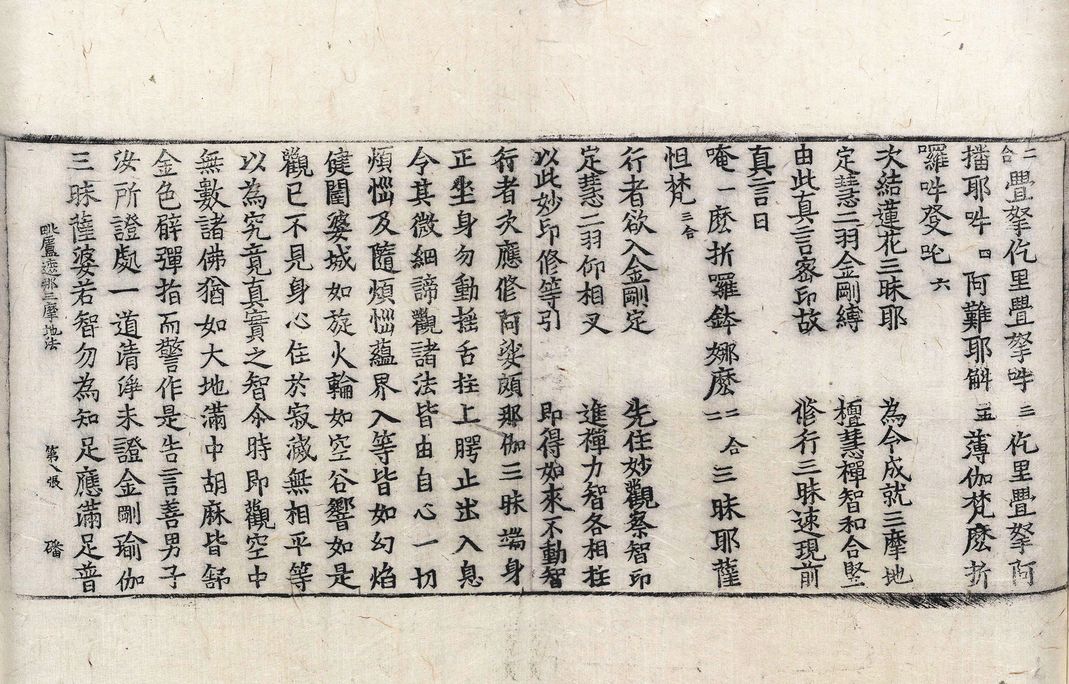 二合 疊拏仡里疊拏吽 三 仡里疊拏阿
播耶吽 四 阿難耶斛 五 薄伽梵麽折
囉吽發吒 六
次結蓮花三昧耶 為令成就三摩地
定慧二羽金剛縛 檀慧禪智和合竪
由此真言密印故 修行三昧速現前
真言曰
唵 一 麽折羅鉢娜麽 二 二合 三昧耶薩
怛梵 三合
行者欲入金剛定 先住妙觀察智印
定慧二羽仰相叉 進禪力智各相拄
以此妙印修等引 即得如來不動智
行者次應修阿娑頗那伽三昧端身
正坐身勿動揺舌拄上腭止出入息
令其微細諦觀諸法皆由自心一切
煩惱及隨煩惱蘊界入等皆如幻焰
健闥婆城如旋火輪如空谷響如是
觀已不見身心住於寂滅無相平等
以為究竟真實之智尒時即觀空中
無數諸佛猶如大地滿中胡麻皆舒
金色臂彈指而警作是告言善男子
汝所證處一道清淨未證金剛瑜伽
三昧薩婆若智勿為知足應滿足普
毗盧遮那三摩地法 第八張 磻